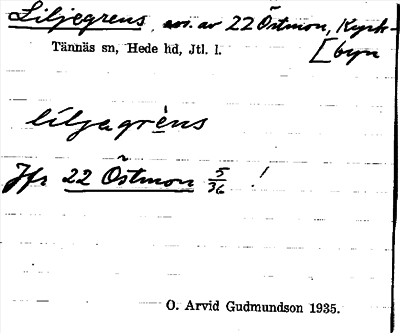 Liljegrens, sv. av 22 Östmon, Kyrk-
[byn
Tännäs sn, Hede hd, Jtl. l.
liljagrèns
Jfr 22 Östmon 5/36 !
O. Arvid Gudmundson 1935.